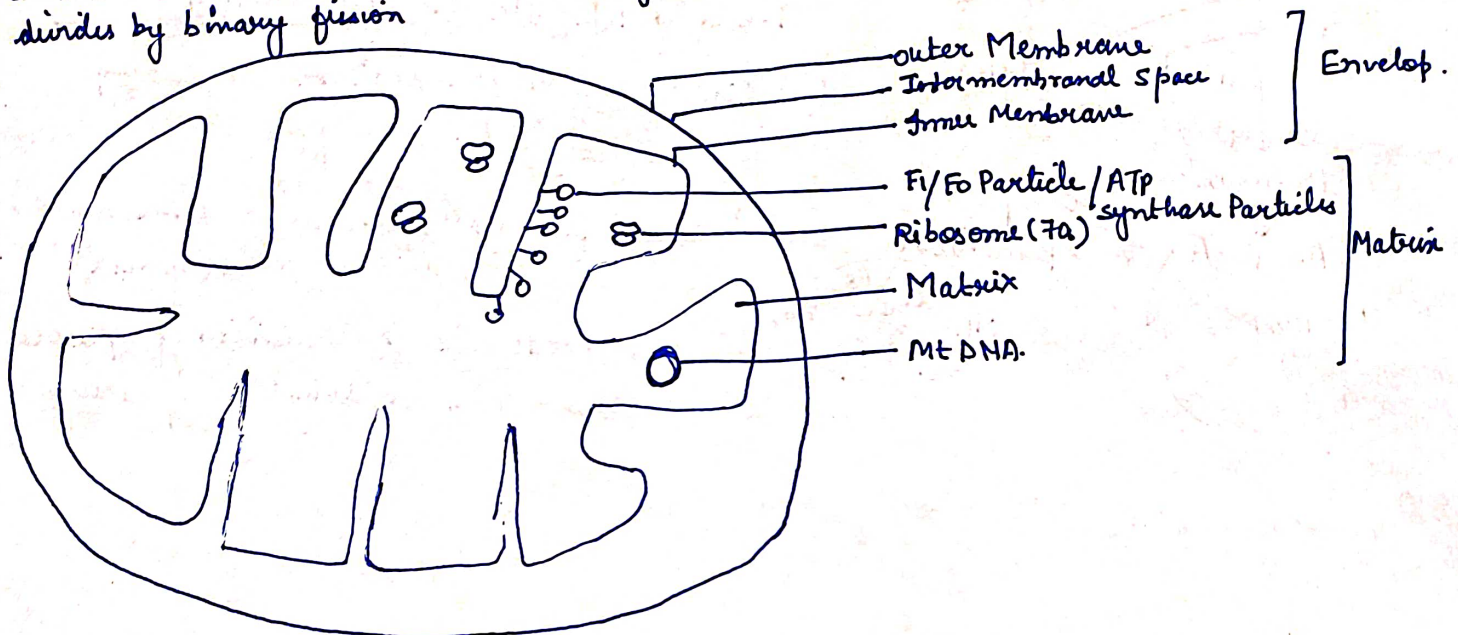 divides by binary fission
outer Membrane
Intermembranal Space
Inner Membrane
Envelop.
F1/F0 Particle/ATP
synthase Particles
Ribosome (70)
Matrix
Mt DNA.
Matrix